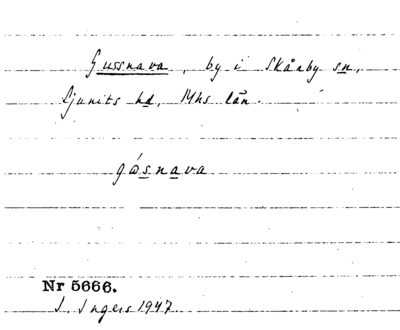 Gussnava, by i Skårby sn,
Ljunits hd, Mhs län.
gåsnava
Nr 5666.
I. Ingers 1947.